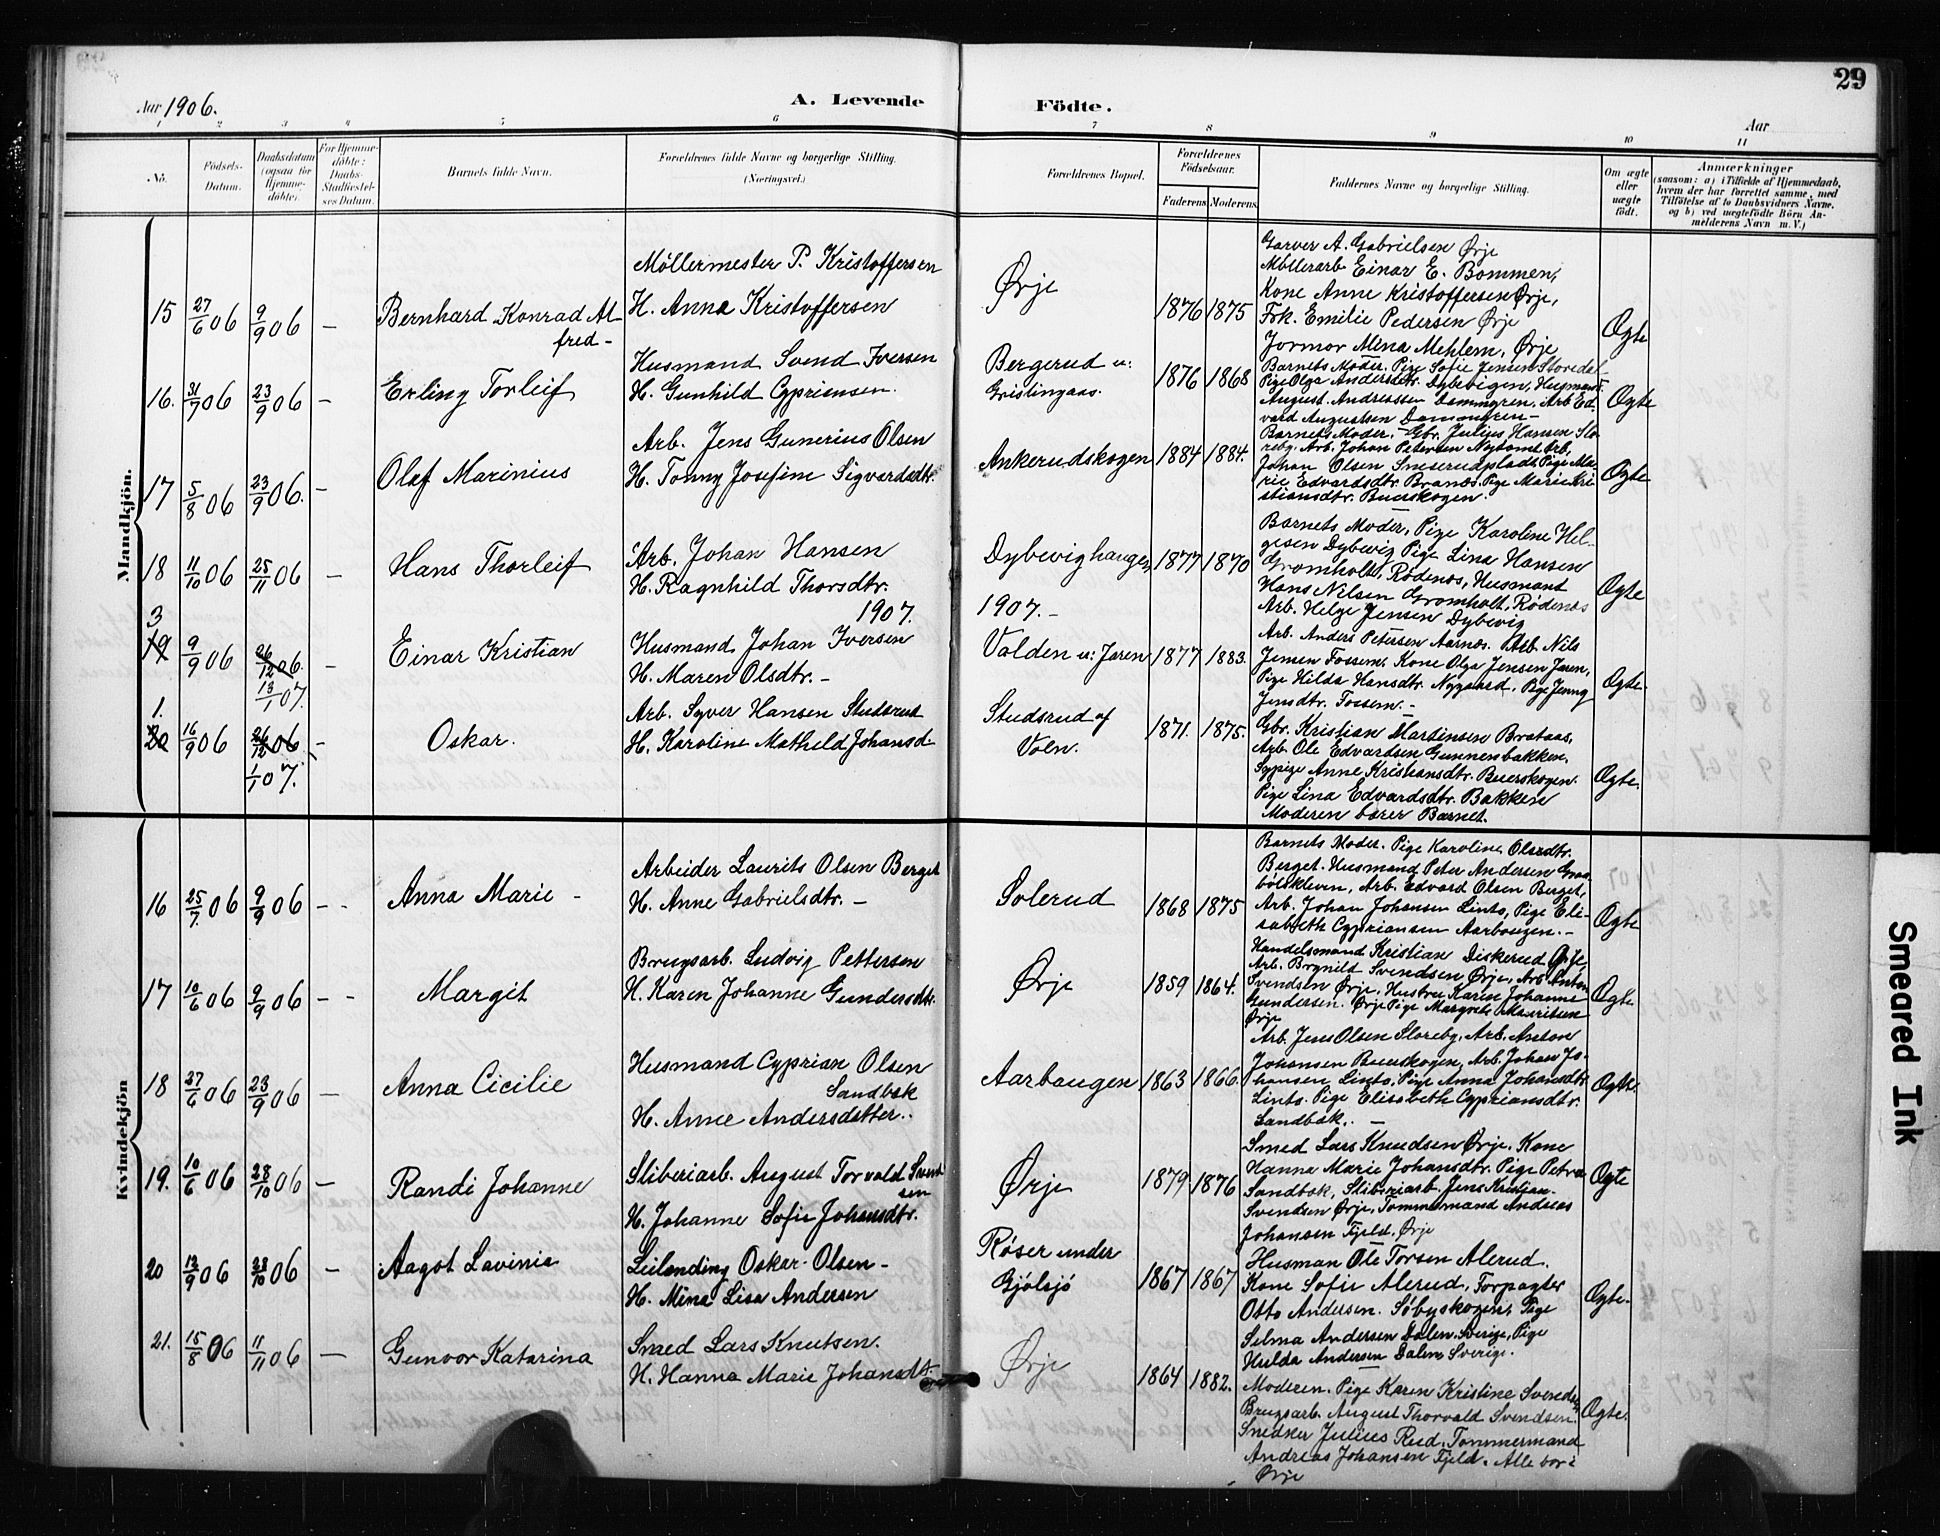 29
Aar 1906.
A. Levende
Födte.
Aar
1 2 3 4 5 6
7 8 9 10 11
No.
Födsels-
Datum.
Daabsdatum
(ogsaa for
Hjemme-
döbte)
For Hjemme-
döbte:
Daabs-
Stadfæstel-
ses Datum.
Barnets fulde Navn.
Forældrenes fulde Navne og borgerlige Stilling.
(Næringsvei.)
Forældrenes Bopæl.
Forældrenes
Födselsaar.
Faderens Moderens
Faddernes Navne og borgerlige Stilling.
Om ægte
eller
uægte
födt.
Anmærkninger
(saasom: a) i Tilfælde af Hjemmedaab,
hvem der har forrettet samme, med
Tilföielse af to Daabsvidners Navne.
og b) ved uægtefödte Börn An-
melderens Navn m. V.)
Mandkjön.
15 27/6 06 9/9 06 —
Bernhard Konrad Al
fred-
Möllermester P. Kristoffersen
H. Anna Kristoffersen
Ørje
1876 1875
Garver A. Gabrielsen Ørje
Möllerarb Einar E. Bommen,
Kone Anne Kristoffersen Ørje,
Frk. Emilie Pedersen Ørje
Jormor Mina Mehlem, Ørje
Ægte
16. 31/7 06 23/9 06 —
Erling Torleif
Husmand Svend Iversen
H. Gunhild Cypriensen.
Bergerud u:
Gristingaas.
1876 1868
Barnets Moder. Pige Sofie Jensen Storedal
Pige Olga Andersdtr. Dybevigen, Husmand
August Andreassen Dammyren. Arb Ed-
vard Augustsen Dammyren —
Ægte
17 5/8 06 23/9 06. —
Olaf Marinius
Arb. Jens Gunerius Olsen
H. Tonny Josefine Sigvardsdtr.
Ankerudskogen
1884 1884.
Barnets Moder. Gbr. Julius Hansen Slo
reby. Arb. Johan Petersen Nytomt Arb.
Johan Olsen Smeserudplads, Pige Ma
rie Edvardsdtr. Branæs. Pige Marie Kri
stiansdtr. Buerskogen.
Ægte
18 11/10 06 25/11 06 —
Hans Thorleif
Arb. Johan Hansen
H. Ragnhild Thorsdtr.
Dybevighaugen
1877 1870
Barnets Moder, Pige Karoline Hel-
gesen Dybevig Pige Lina Hansen
Gromholt, Rødenæs, Husmand
Hans Nilsen Gromholt, Rødenæs
Arb. Helge Jensen Dybevig
Ægte
1907.
1907. —
3
19 9/9 06 26/12 06. —
13/1 07.
Einar Kristian
Husmand Johan Iversen
H. Maren Olsdtr. —
Volden u: Jaren
1877 1883.
Arb. Anders Petersen Aarnæs. Arb. Nils
Jensen Fossem, Kone Olga Jensen Jaren,
Pige Hilda Hansdtr. Nygaard, Pige Jenny
Jensdtr. Fossem. —
Ægte
1.
20 16/9 06 26/12 06 —
1/1 07.
Oskar.
Arb. Syver Hansen Studsrud
H. Karoline Mathild Johansd.
Studsrud af
Voln.
1871. 1875.
Gbr. Kristian Martinsen Brataas,
Arb. Ole Edvardsen Gunnersbakken,
Sypige Anne Kristiansdtr. Buerskogen.
Pige Lina Edvardsdtr. Bakken
Moderen bærer Barnet.
Ægte.
Kvindekjön
16 25/7 06 9/9 06 — -
Anna Marie —
Arbeider Laurits Olsen Berget
H. Anne Gabrielsdtr. —
Solerud
1868 1875
Barnets Moder. Pige Karoline Olsdtr.
Berget. Husmand Peter Andersen Graa
bölskleven, Arb. Edvard Olsen Berget,
Arb. Johan Johansen Linto, Pige Eli-
sabeth Cypriansen Aarbaugen. —
Ægte
17 10/6 06 9/9 06 — -
Margit
Brugsarb. Ludvig Pettersen
H. Karen Johanne Gundersdtr.
Ørje
1859 1864.
Handelsmand Kristian Diskerud Ørje,
Arb. Brynild Svendsen Ørje, Arb. Anton
Svendsen Ørje, Hustru Karen Johanne
Gundersen. Ørje Pige Margrete Mauritsen
Ørje
Ægte.
18 27/6 06 23/9 06 —
Anna Cicilie
Husmand Cyprian Olsen
Sandbæk
H. Anne Andersdatter..
Aarbaugen
1863 1866.
Arb. Jens Olsen Sloreby, Arb. Anton
Johansen Buerskogen, Arb. Johan Jo-
hansen Linto, Pige Anna Johansdtr
Linto. Pige Elisabeth Cypriansdtr.
Sandbæk. —
Ægte.
19. 10/6 06 28/10 06 —
Randi Johanne
Sliberiarb. August Torvald Svend
sen
H. Johanne Sofie Johansdtr.
Ørje
1879 1876
Smed Lars Knudsen Ørje. Kone
Hanna Marie Johansdtr. Pige Petra
Sandbæk, Sliberiarb. Jens Kristian
Svendsen Ørje, Tømmermand Andreas
Johansen Fjeld, Ørje
Ægte
20 12/9 06 28/10 06 —
Aagot Lavinie
Leilending Oskar Olsen —
H. Mina Lisa Andersen
Røser under
Gjölsjö
1867 1867
Husman Ole Torsen Alerud.
Kone Sofie Alerud, Forpagter
Otto Andersen. Söbyskogen, Pige
Selma Andersen Dalen. Sverige, Pige
Hulda Andersen Dalen Sverige.
Ægte.
21. 15/8 06 11/11 06 —
Gunvor Katarina
Smed Lars Knutsen.
H. Hanna Marie Johansdtr.
Ørje
1864 1882.
Moderen. Pige Karen Kristine Svendsen
Brugsarb. August Thorvald Svendsen.
Snedker Julius Rud, Tømmermand
Andreas Johansen Fjeld. Alle bor i
Ørje
Ægte.
Smeared Ink